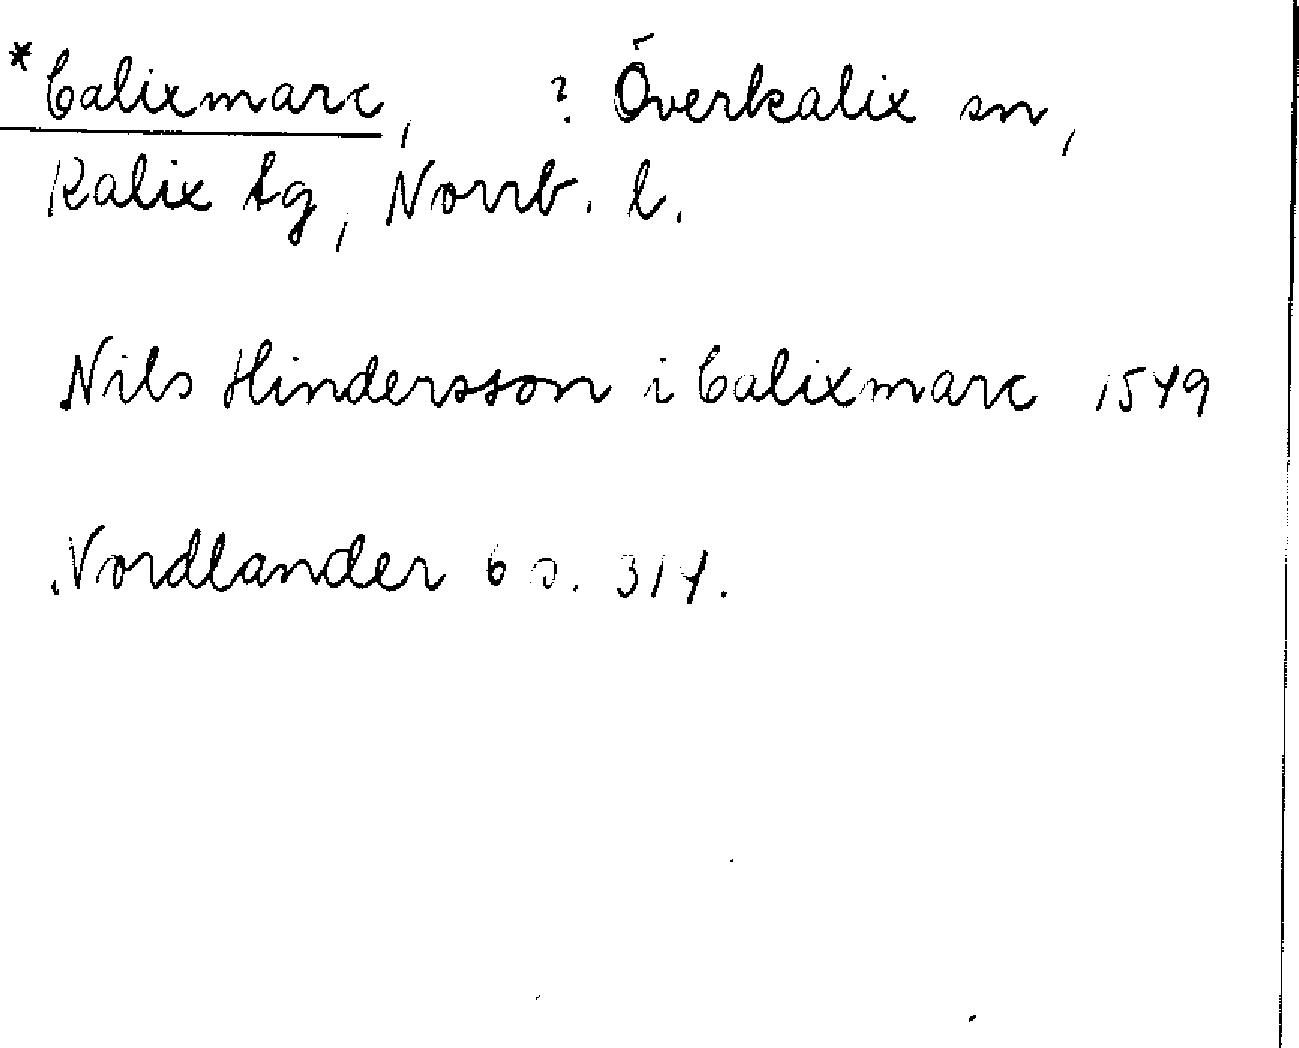 *Calixmarc, ? Överkalix sn,
Kalix tg, Norrb. l.
Nils Hindersson i Calixmarc 1549
Nordlander 6 s. 314.